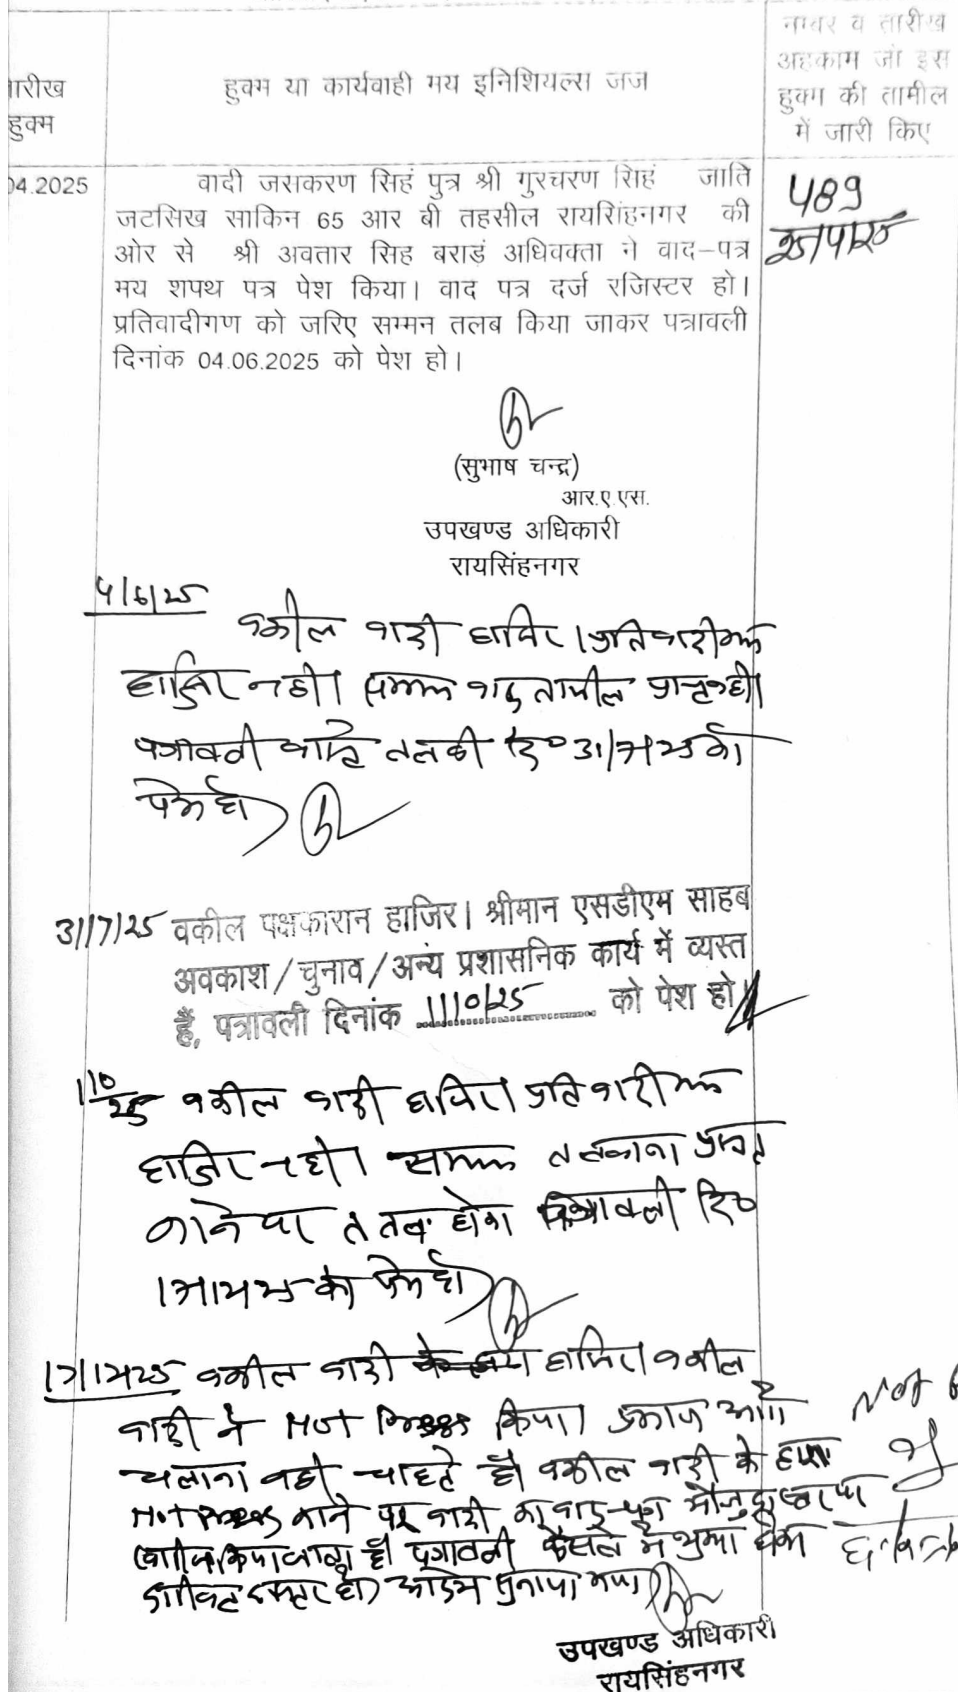 नम्बर व तारीख
अहकाम जो इस
हुक्म की तामील
में जारी किए
तारीख
हुक्म
हुक्म या कार्यवाही मय इनिशियल्स जज
04.2025
वादी जसकरण सिहं पुत्र श्री गुरचरण सिहं जाति
जटसिख साकिन 65 आर बी तहसील रायसिंहनगर की
ओर से श्री अवतार सिह बराडं अधिवक्ता ने वाद-पत्र
मय शपथ पत्र पेश किया। वाद पत्र दर्ज रजिस्टर हो।
प्रतिवादीगण को जरिए सम्मन तलब किया जाकर पत्रावली
दिनांक 04.06.2025 को पेश हो।
489
(सुभाष चन्द्र)
आर.ए.एस.
उपखण्ड अधिकारी
रायसिंहनगर
4/6/25
वकील वादी हाजिर। प्रतिवादीगण
हाजिर नहीं। सम्मन बाद तामील प्राप्त नहीं।
पत्रावली वास्ते तलबी दि० 31/7/25 को
पेश हो
31/7/25 वकील पक्षकारान हाजिर। श्रीमान एसडीएम साहब
अवकाश/चुनाव/अन्य प्रशासनिक कार्य में व्यस्त
हैं, पत्रावली दिनांक 1/10/25 को पेश हो।
1/10/25 वकील वादी हाजिर। प्रतिवादीगण
हाजिर नहीं। सम्मन तलबाना प्रस्तुत
करने पर तलब होकर पत्रावली दि०
को पेश हो
वकील वादी हाजिर। वकील
वादी ने Not Press किया। आगे
चलाना नहीं चाहते हैं। वकील वादी के द्वारा
Not Press करने पर वादी का वाद-पत्र
खारिज किया जाता है। पत्रावली फैसले में शुमार होकर
दाखिल दफ्तर हो। आदेश सुनाया गया
Not
उपखण्ड अधिकारी
रायसिंहनगर